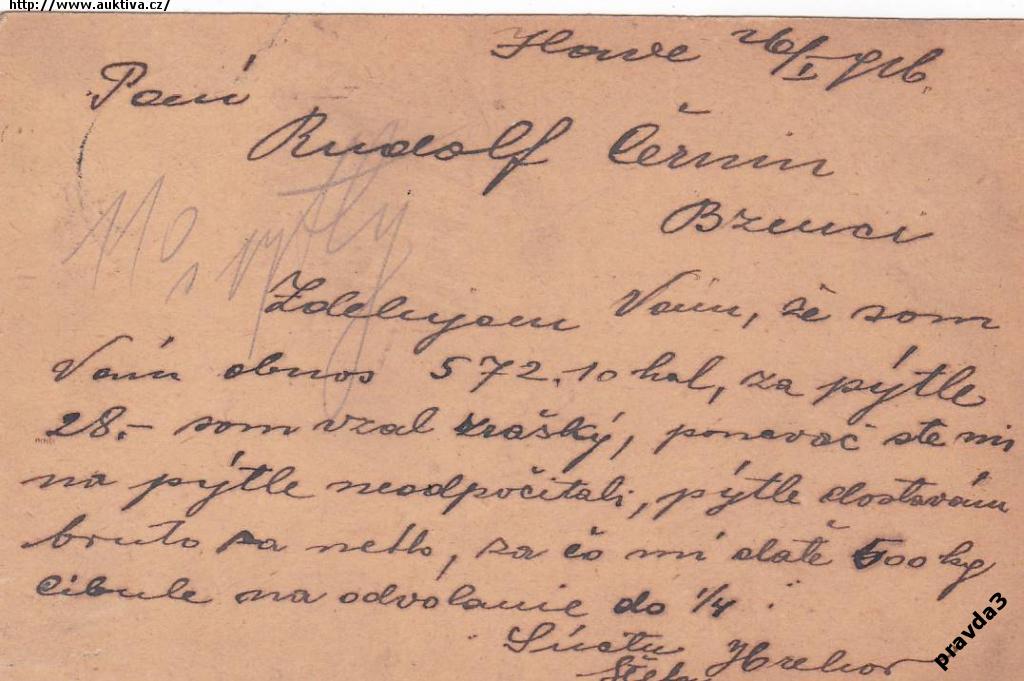 http://www.auktiva.cz/
26/I 916.
Paní
Rudolf Černín
Bzenci
110 pytly
Zdelujem Vám, že som
Vám obnos 572.10 hal, za pýtle
28.- som vzal srašký, ponevač ste mi
na pýtle neodpočitali, pýtle dostavám
bruto za netto, za čo mi dáte 500 kg
cibule na odvolanie do 1/4.
S úctu
pravda3